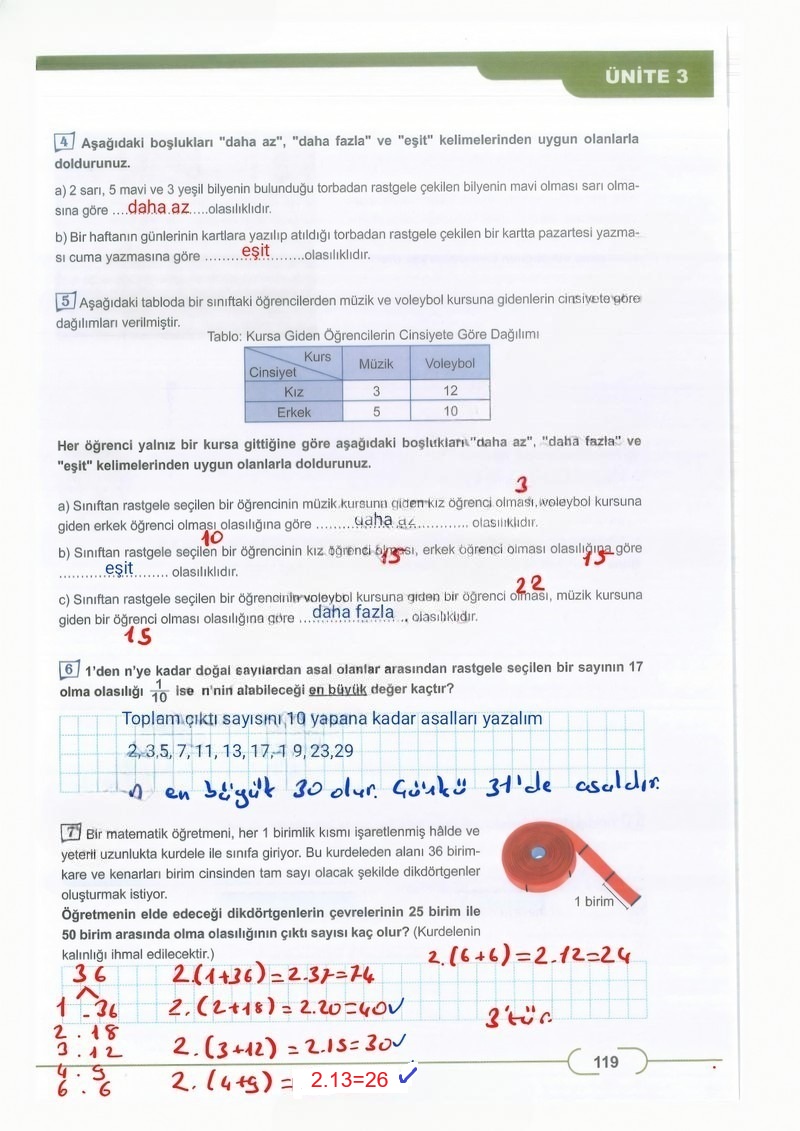 ÜNİTE 3
4 Aşağıdaki boşlukları "daha az", "daha fazla" ve "eşit" kelimelerinden uygun olanlarla
doldurunuz.
a) 2 sarı, 5 mavi ve 3 yeşil bilyenin bulunduğu torbadan rastgele çekilen bilyenin mavi olması sarı olma-
sına göre ....daha az.....olasılıklıdır.
b) Bir haftanın günlerinin kartlara yazılıp atıldığı torbadan rastgele çekilen bir kartta pazartesi yazma-
sı cuma yazmasına göre .........eşit.........olasılıklıdır.
5 Aşağıdaki tabloda bir sınıftaki öğrencilerden müzik ve voleybol kursuna gidenlerin cinsiyete göre
dağılımları verilmiştir.
Tablo: Kursa Giden Öğrencilerin Cinsiyete Göre Dağılımı
Kurs
Cinsiyet
Müzik
Voleybol
Kız 3 12
Erkek 5 10
Her öğrenci yalnız bir kursa gittiğine göre aşağıdaki boşlukları "daha az", "daha fazla" ve
"eşit" kelimelerinden uygun olanlarla doldurunuz.
3
a) Sınıftan rastgele seçilen bir öğrencinin müzik kursuna giden kız öğrenci olması, voleybol kursuna
giden erkek öğrenci olması olasılığına göre .........daha az............. olasılıklıdır.
10
b) Sınıftan rastgele seçilen bir öğrencinin kız öğrenci olması, erkek öğrenci olması olasılığına göre
15 15
...........eşit......... olasılıklıdır.
22
c) Sınıftan rastgele seçilen bir öğrencinin voleybol kursuna giden bir öğrenci olması, müzik kursuna
giden bir öğrenci olması olasılığına göre ...daha fazla... olasılıklıdır.
15
6 1'den n'ye kadar doğal sayılardan asal olanlar arasından rastgele seçilen bir sayının 17
olma olasılığı 1/10 ise n'nin alabileceği en büyük değer kaçtır?
Toplam çıktı sayısını 10 yapana kadar asalları yazalım
2, 3,5, 7, 11, 13, 17, 1 9, 23,29
n en büyük 30 olur. Çünkü 31'de asaldır.
7 Bir matematik öğretmeni, her 1 birimlik kısmı işaretlenmiş hâlde ve
yeterli uzunlukta kurdele ile sınıfa giriyor. Bu kurdeleden alanı 36 birim-
kare ve kenarları birim cinsinden tam sayı olacak şekilde dikdörtgenler
oluşturmak istiyor.
1 birim
Öğretmenin elde edeceği dikdörtgenlerin çevrelerinin 25 birim ile
50 birim arasında olma olasılığının çıktı sayısı kaç olur? (Kurdelenin
kalınlığı ihmal edilecektir.)
36 2.(1+36)=2.37=74 2.(6+6)=2.12=24
1 . 36 2.(2+18)=2.20=40✓ 3'tür.
2 . 18
3 . 12 2.(3+12)=2.15=30✓
4 . 9 2.(4+9)= 2.13=26 ✓
6 . 6
119